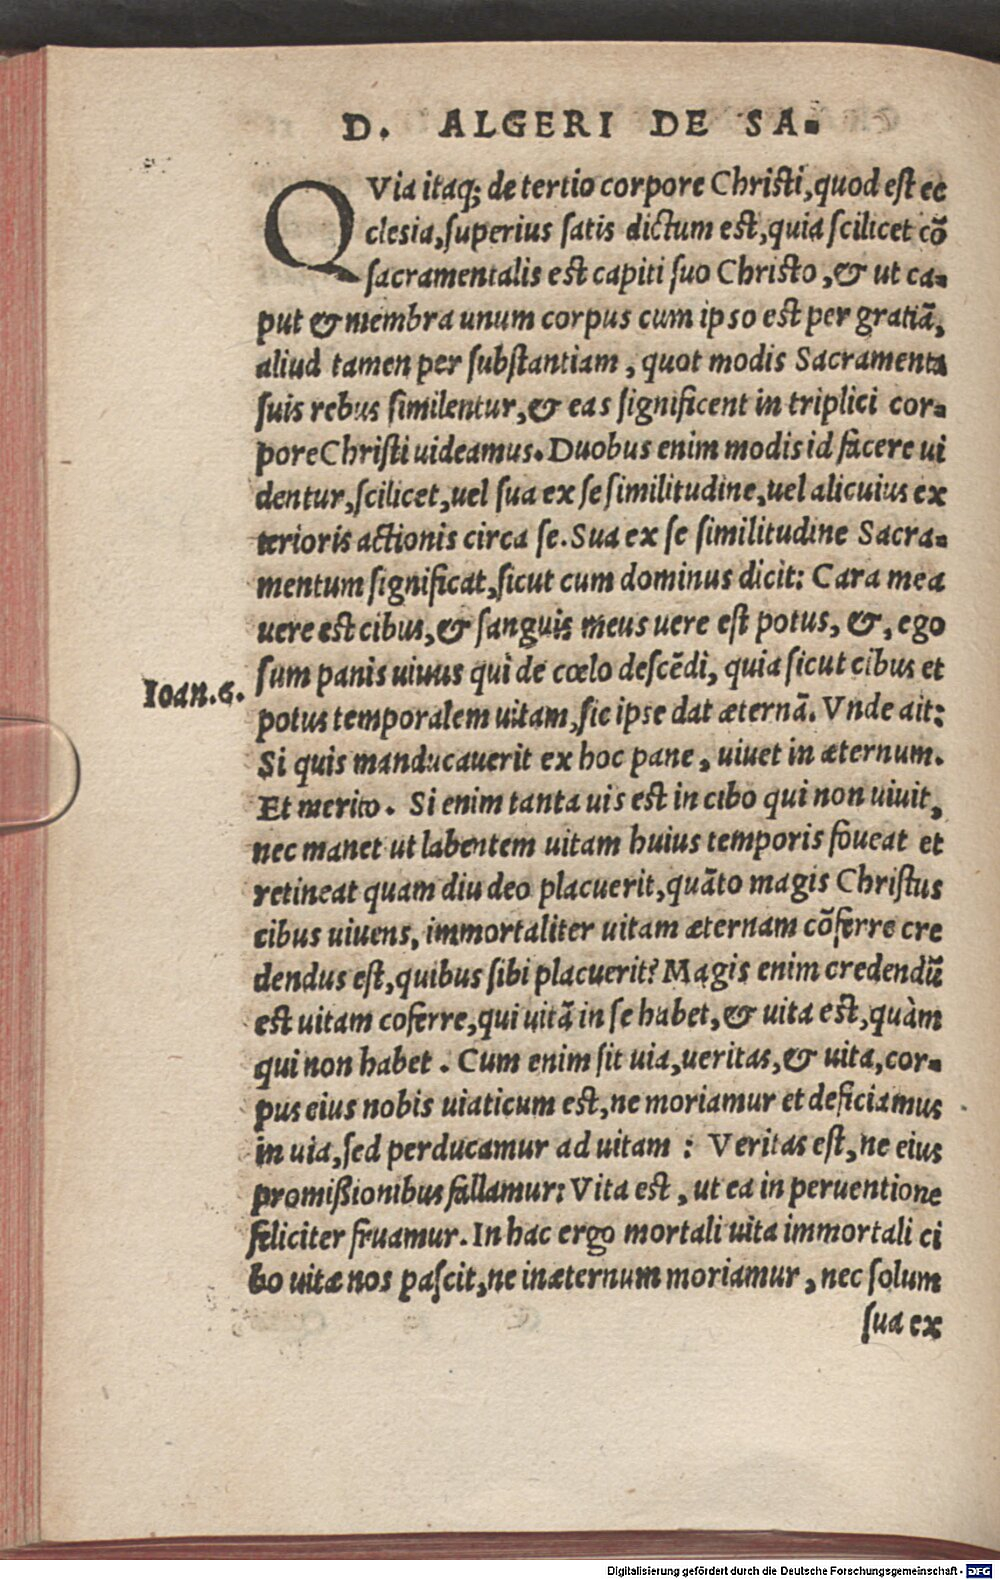 D. ALGERI DE SA-
QVia itaq; de tertio corpore Christi, quod est ec
clesia, superius satis dictum est, quia scilicet cõ
sacramentalis est capiti suo Christo, & ut ca-
put & membra unum corpus cum ipso est per gratiã,
aliud tamen per substantiam, quot modis Sacramenta
suis rebus similentur, & eas significent in triplici cor-
pore Christi uideamus. Duobus enim modis id facere ui
dentur, scilicet, uel sua ex se similitudine, uel alicuius ex
terioris actionis circa se. Sua ex se similitudine Sacra-
mentum significat, sicut cum dominus dicit: Cara mea
uere est cibus, & sanguis meus uere est potus, &, ego
Ioan.6.
sum panis uiuus qui de cœlo descẽdi, quia sicut cibus et
potus temporalem uitam, sic ipse dat æternã. Vnde ait:
Si quis manducauerit ex hoc pane, uiuet in æternum.
Et merito. Si enim tanta uis est in cibo qui non uiuit,
nec manet ut labentem uitam huius temporis foueat et
retineat quam diu deo placuerit, quãto magis Christus
cibus uiuens, immortaliter uitam æternam cõferre cre
dendus est, quibus sibi placuerit? Magis enim credendũ
est uitam coferre, qui uitã in se habet, & uita est, quàm
qui non habet. Cum enim sit uia, ueritas, & uita, cor-
pus eius nobis uiaticum est, ne moriamur et deficiamus
in uia, sed perducamur ad uitam: Veritas est, ne eius
promißionibus fallamur: Vita est, ut ea in peruentione
feliciter fruamur. In hac ergo mortali uita immortali ci
bo uitæ nos pascit, ne in æternum moriamur, nec solum
sua ex
Digitalisierung gefördert durch die Deutsche Forschungsgemeinschaft - DFG